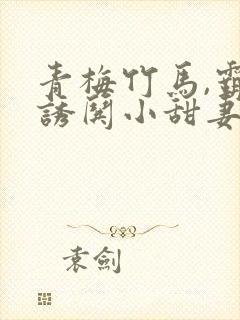 青梅竹馬,霸
誘関小甜妻
袁劍